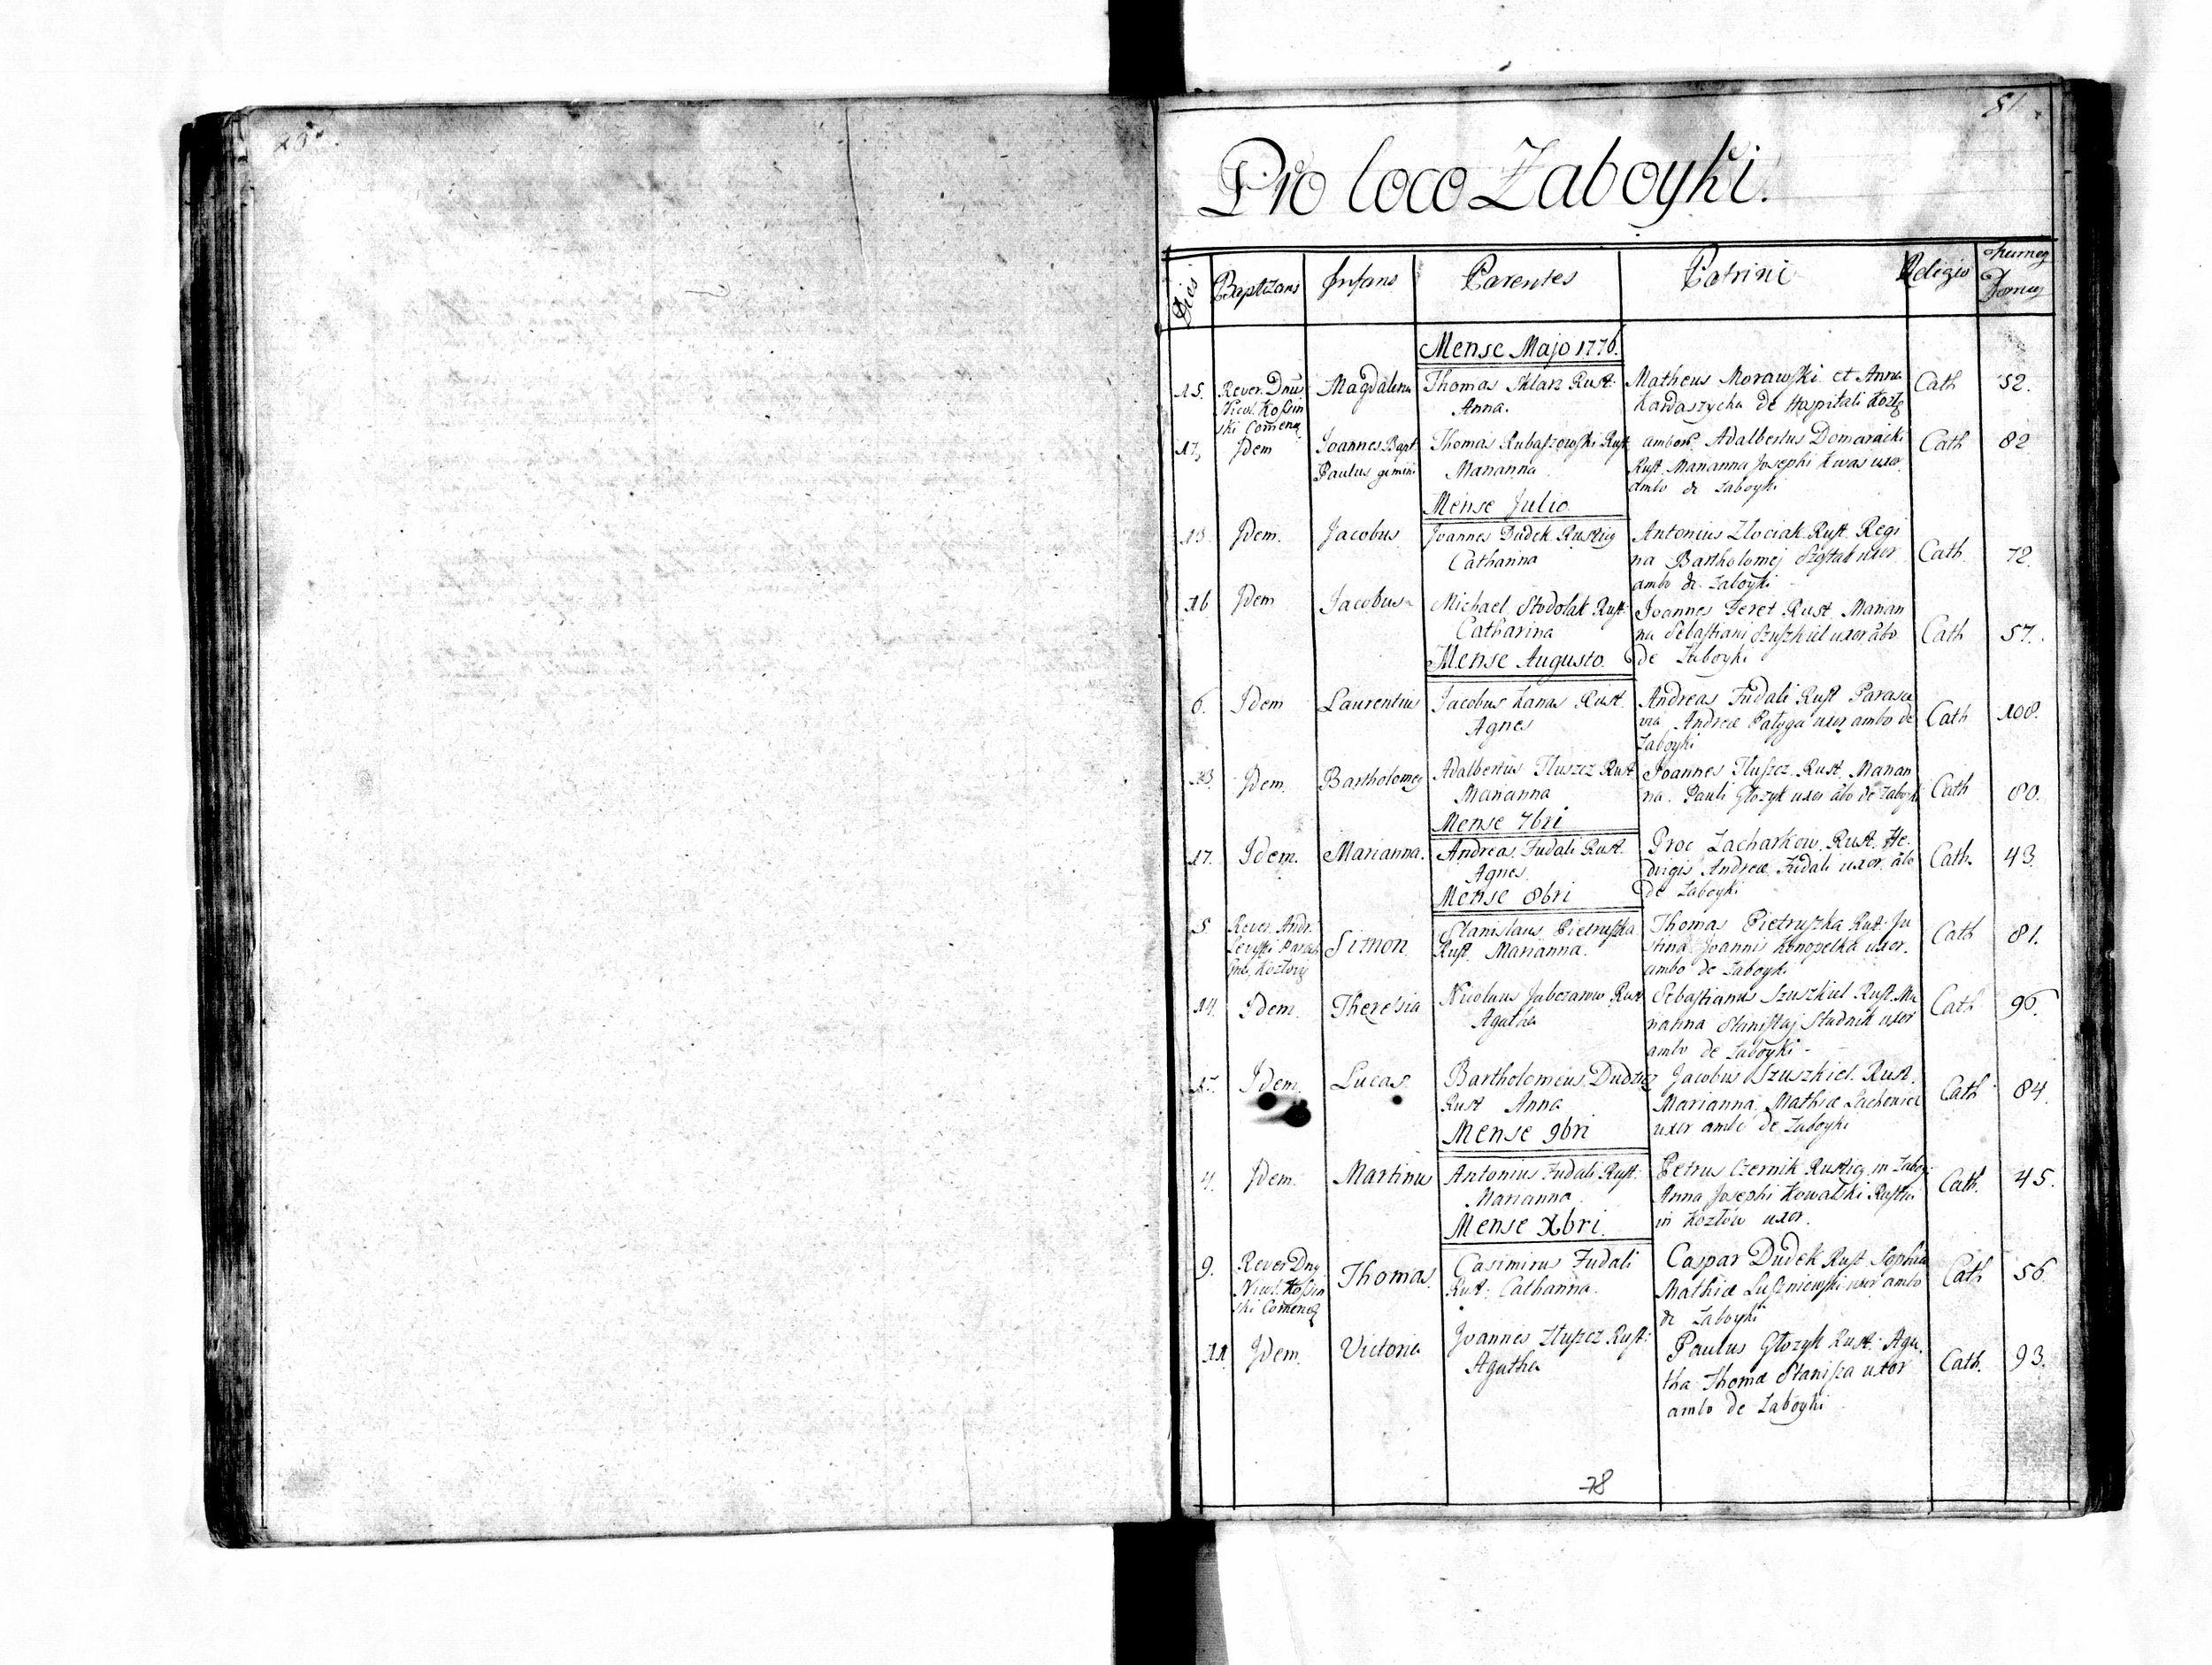 51
Pro loco Zaboyki.
Dies Baptizans Infans Parentes Patrini Religio Numeq Domuq
Mense Majo 1776.
15. Rever. Dnus Magdalena Thomas Sklarz Rust. Matheus Morawski et Anna Cath 52.
Nicol. Kossin Anna. Kardaszycha de Hospitali Kozlo
ski Comenq
17. Idem Joannes Bapt. Thomas Rubaszowski Rust. Adalbertus Domaracki Cath 82
Paulus gemini Marianna Rust. Marianna Josephi Kwas uxor
ambo de Zaboyki
Mense Julio
13 Idem. Jacobus Joannes Dudek Rusticq Antonius Zlociak Rust. Regi
Catharina na Bartholomej Szostak uxor Cath. 72.
ambo de Zaboyki
16 Idem Jacobus Michael Stodolak Rust. Joannes Feret Rust. Marian
Catharina na Sebastiani Szuszkiel uxor abo Cath 57.
Mense Augusto. de Zaboyki
6. Idem Laurentius Jacobus Kanas Rust. Andreas Fudali Rust Parasce
Agnes via Andreæ Palyga uxor ambo de Cath 108.
Zaboyki
Idem. Bartholomeq Adalbertus Tluszcz Rust Joannes Tluszcz Rust. Marian
Marianna na Pauli Glozyk uxor abo de Zaboyki Cath 80.
Mense 7bri
17. Idem. Marianna. Andreas Fudali Rust. Proc Zacharkow Rust. He- Cath. 43.
Agnes. dvigis Andreæ Fudali uxor abo
Mense 8bri de Zaboyki
5 Rever. Andr. Simon Stanislaus Pietruszka Thomas Pietruszka Rust. Ju Cath 81.
Rust. Marianna. stina Joannis Konopelka uxor.
ambo de Zaboyki
14. Idem. Theresia Nicolaus Jabczanw Rust Sebastianus Szuszkiel Rust. Ma Cath 96.
Agatha rianna Stanislaj Studnik uxor
ambo de Zaboyki -
Idem. Lucas. Bartholomeus Dudzicz Jacobus Szuszkiel. Rust.
Rust Anna Marianna Mathiæ Lachowicz Cath 84.
Mense 9bri uxor ambo de Zaboyki
4. Idem. Martinus Antonius Fudali Rust. Petrus Czernik Rusticq in Zaboy- Cath. 45.
Marianna. Anna Josephi Kowalski Rustici
Mense Xbri. in Kozlow uxor.
9. Rever Dnq Thomas. Casimirus Fudali Caspar Dudek Rust Sophia Cath 56
Nicol. Kossin Rust. Catharina. Mathiæ Luszniewski uxor ambo
ski Comenq de Zaboyki
11. Idem. Victoria Joannes Tluszcz Rust. Paulus Glozyk Rust. Aga- Cath. 93.
Agatha tha Thomæ Stanisza uxor
ambo de Zaboyki
78